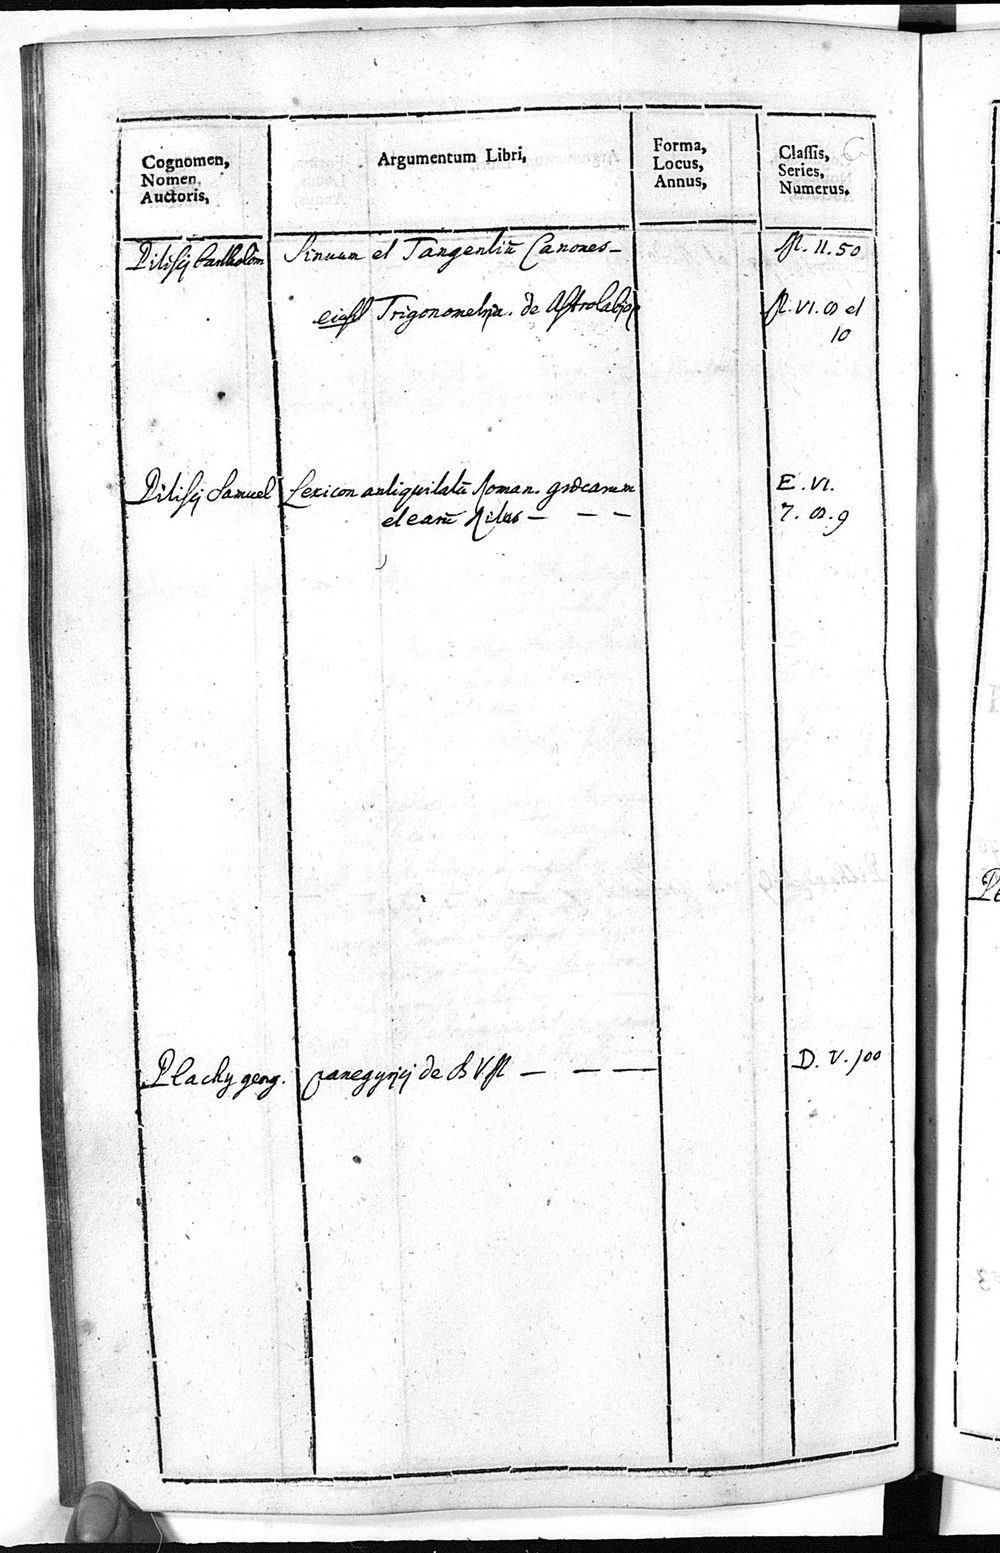 Cognomen,
Nomen,
Auctoris,
Argumentum Libri,
Forma,
Locus,
Annus,
Classis,
Series,
Numerus.
Pitiscij Bartholom Sinuum et Tangentiū Canones – M. II. 50
eiusd Trigonometria. de Astrolabio M. VI. 8 et
10
Pitiscij Samuel Lexicon antiquitatū Roman. græcarum E. VI.
et earū Ritus – – – 7. 8. 9
Plachy georg. panegyrici de B V M – – – D. V. 100